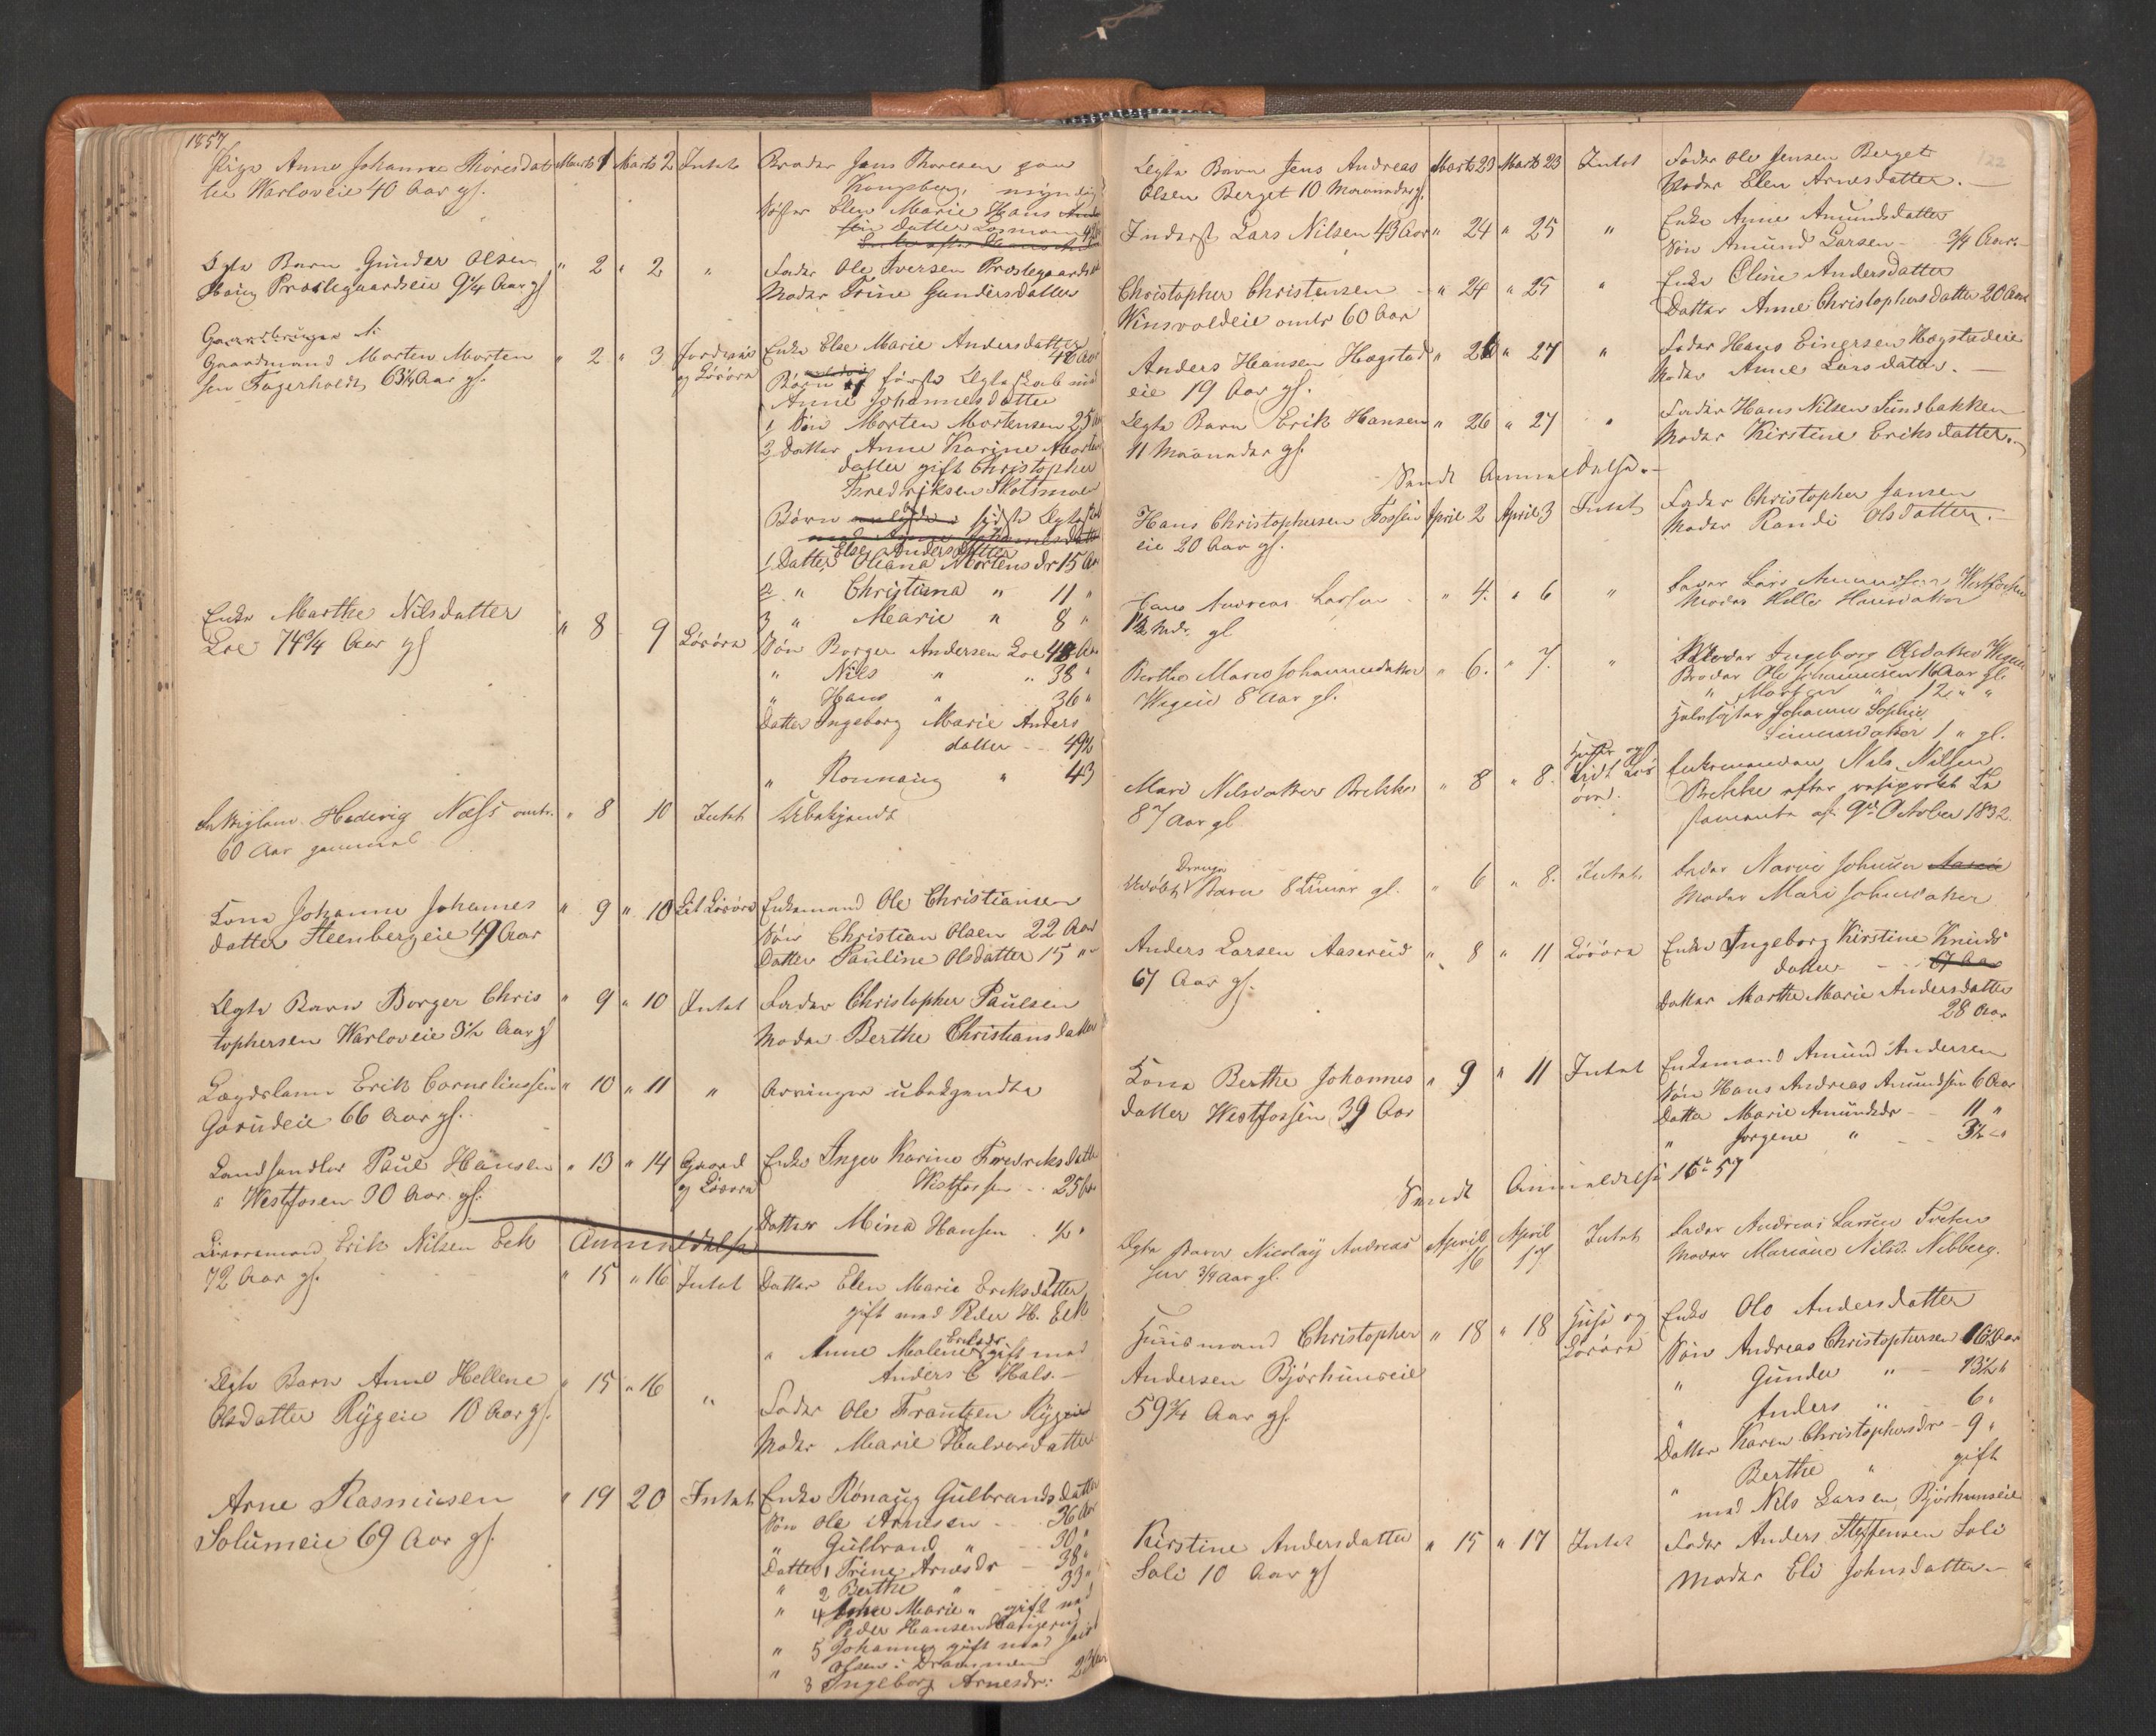 1857
Pige Anne Johanne Thoresdat Marts 1 Marts 2 Intet Broder Jens Thoresen paa
ter Warloveie 40 Aar gl. Kongsberg, myndig
Søster Elen Marie Hans
Datter
Ægte Barn Gunder Olsen " 2 " 2 " Fader Ole Iversen Prestegaardseie
Haug Prestegaardseie 9 1/4 Aar gl Moder Trine Gundersdatter
Gaardbruger
Gaardmand Morten Morten " 2 " 3 Jordeie Enke Else Marie Andersdatter
sen Fagerholdt 63 1/4 Aar gl. og Løsøre 48 Aar
Børn af første Ægteskab med
Anne Johannesdatter
1 Søn Morten Mortensen 25 Aar
2 Datter Anne Karine Morten
datter gift Christopher
Fredriksen Skotsmoen
Børn sidste Ægteskab
Else Andersdatter
1 Datter Oleana Mortensdr 15 Aar
2 " Christiana " 11 "
3 " Marie " 8 "
Enke Marthe Nilsdatter " 8 9 Løsøre Søn Borger Andersen Loe 48 Aar
Loe 74 3/4 Aar gl " Nils " " 38 "
" Hans " 36 "
Datter Ingeborg Marie Anders
datter 49 1/2
" Ronnaug " 43
Hedevig Næss omtr. " 8 10 Intet Ubekjendt
60 Aar gammel
Kone Johanne Johannes " 9 " 10 Lit Løsøre Enkemand Ole Christiansen
datter Steenbergeie 49 Aar Søn Christian Olsen 22 Aar
Datter Pauline Olsdatter 15 "
Ægte Barn Borger Chris " 9 " 10 Intet Fader Christopher Paulsen
tophersen Warloveie 3 1/2 Aar gl Moder Berthe Christiansdatter
Lægdslem Erik Corneliussen " 10 " 11 " Arvinger ubekjendte
Garudeie 66 Aar gl.
Landhandler Paul Hansen " 13 " 14 Gaard Enke Inger Karine Fredriksdatter
i Westfossen 30 Aar gl. og Løsøre Westfossen 25 Aar
Datter Mina Hansen 1/2 "
Anmeldelse
Erik Nilsen Eek
72 Aar gl. " 15 " 16 Intet Datter Elen Marie Eriksdatter
gift med Peder H. Eek
" Anne Malene Eriksdr. gift med
Anders C Hals.
Ægte Barn Anne Hellene " 15 " 16 " Fader Ole Frantzen Rygeie
Olsdatter Rygeie 10 Aar gl. Moder Marie Halvorsdatter
Arne Rasmusen " 19 20 Intet Enke Rønaug Gulbrandsdatter
Solumeie 69 Aar gl. Søn Ole Arnesen 36 Aar
" Gulbrand " 30 "
Datter 1 Trine Arnesdr 38 "
" 2 Berthe " 33 "
" 4 Marie " gift med
Peder Hansen
" 5 Johanne gift med
" Olsen i Drammen
3 Ingeborg Arnesdr.
122
Ægte Barn Jens Andreas Marts 23 Marts 23 Intet Fader Ole Jensen Berget
Olsen Berget 10 Maaneder gl. Moder Elen Arnesdatter.
Inderst Lars Nilsen 43 Aar " 24 " 25 " Enke Anne Amundsdatter
Søn Amund Larsen 3/4 Aar
Christopher Christensen " 24 " 25 " Enke Oline Andersdatter
Winsvoldeie omtr 60 Aar Datter Anne Christophersdatter 20 Aar
Anders Hansen Hagstad " 26 " 27 " Fader Hans Einersen Hagstadeie
eie 19 Aar gl. Moder Anne Larsdatter.
Ægte Barn Erik Hansen " 26 " 27 " Fader Hans Nilsen Sundbakken
11 Maaneder gl. Moder Kirstine Eriksdatter.
Sendt Anmeldelse
Hans Christophersen Fossen April 2 April 3 Intet Fader Christopher Jansen
eie 20 Aar gl. Moder Randi Olsdatter.
Hans Andreas Larsen " 4. " 6 " Fader Lars Westfossen
Mdr. gl Moder Helle Hansdatter
Berthe Marie Johannesdatter " 6. " 7. " Moder Ingeborg Olsdatter
Wegeie 8 Aar gl. Broder Ole Johannesen 16 Aar gl.
" Morten " 12 " "
Halvsøster Johanne Sophie
1 " gl.
Mari Nilsdatter Brekke " 8 " 8. Enkemanden Nils Nilsen
87 Aar gl Brekke efter Te
stamente af 9de October 1832.
Udøbt Drenge Barn 8 Timer gl. " 6 " 8. Intet Fader Narve Johnsen
Moder Mari Johnsdatter
Anders Larsen Aasereid " 8 " 11 Løsøre Enke Ingeborg Kirstine Knuds
67 Aar gl. datter
Datter Marthe Marie Andersdatter
28 Aar
Kone Berthe Johannes " 9 " 11 Intet Enkemand Amund Andersen
datter Westfossen 39 Aar Søn Hans Andreas Amundsen 6 Aar
Datter Marie Amundsdr 11 "
" Jorgene " 3 1/2 "
Sendt Anmeldelse 57
Ægte Barn Nicolay Andreas April 16 April 17 Intet Fader Andreas Larsen
sen 3/4 Aar gl. Moder Mariane Nilsd. Nibberg.
Huusmand Christopher " 18 " 18 Huse og Enke Olo Andersdatter
Andersen Bjørhunseie Løsøre Søn Andreas Christophersen 16 Aar
59 3/4 Aar gl. " Gunder " 13 1/2 "
" Anders " 6 "
Datter Karen Christophersdr 9 "
" Berthe " gift
med Nils Larsen Bjørhunseie
Kirstine Andersdatter " 15 " 17 Intet Fader Anders Steffensen Soli
Soli 10 Aar gl Moder Eli Johnsdatter